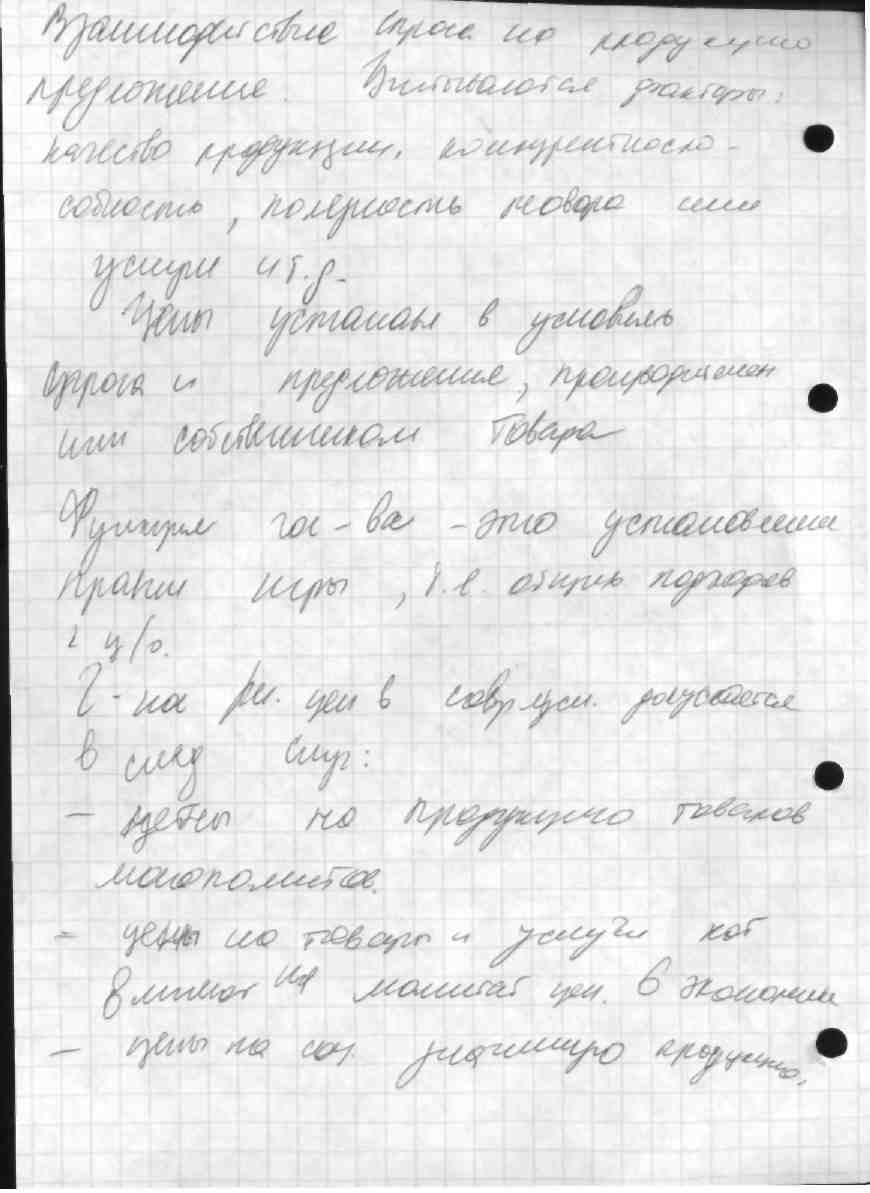 Взаимодействие спроса на продукцию
предложение. Учитываются факторы:
качество продукции, конкурентноспо-
собность, полезность товара или
услуги и т.д.
Цены устанавл в условиях
спроса и предложения, производителем
или собственником товара
Функция гос-ва - это установление
правил игры, т.е. общих подходов
к ц/о.
цен в допускается
в след случ:
- цены на продукцию товаров
монополистов.
- цены на товары и услуги кот
влияют на масштаб цен. в экономики
- цены на соц. значимую продукцию.